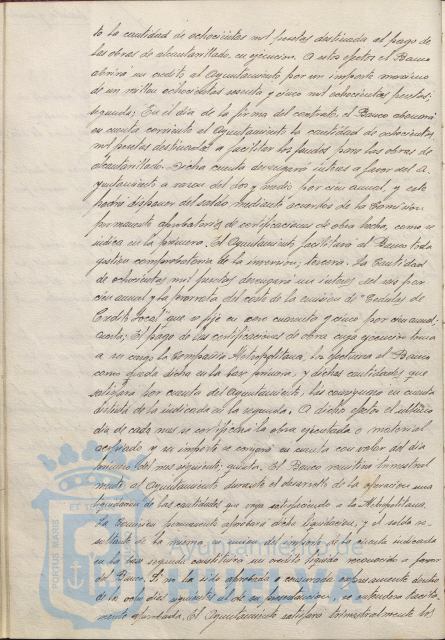 to la cantidad de ochocientas mil pesetas destinada al pago de
las obras de alcantarillado en ejecución. A estos efectos el Banco
abrirá un crédito al Ayuntamiento por un importe máximo
de un millón ochocientas sesenta y cinco mil ochocientas pesetas;
segunda; En el día de la firma del contrato, el Banco abonará
en cuenta corriente al Ayuntamiento la cantidad de ochocientas
mil pesetas destinada a facilitar los fondos para las obras de
alcantarillado. Dicha cuenta devengará interés a favor del A-
yuntamiento a razón del dos y medio por cien anual, y este
podrá disponer del saldo mediante acuerdos de la Comisión
permanente aprobatorios de certificaciones de obra hecha, como se
indica en la primera. El Ayuntamiento facilitará al Banco toda
justificación comprobatoria de la inversión; tercera. La cantidad
de ochocientas mil pesetas devengará un interés del seis por
cien anual y la prorrata del coste de la emisión de "Cédulas de
Crédito Local" que se fija en cero cuarenta y cinco por cien anual;
cuarta; El pago de las certificaciones de obra cuya ejecución toma
a su cargo la Compañía Metropolitana, los efectuará el Banco
como queda dicho en la base primera, y dichas cantidades que
satisfará por cuenta del Ayuntamiento, las consignará en cuenta
distinta de la indicada en la segunda. A dicho efecto el último
día de cada mes se certificará la obra ejecutada o material
acopiado y su importe se cargará en cuenta con valor del día
primero del mes siguiente; quinta. El Banco remitirá trimestral
mente al Ayuntamiento durante el desarrollo de la operación una
liquidación de las cantidades que vaya satisfaciendo a la Metropolitana.
La Comisión permanente aprobará dicha liquidación, y el saldo re-
sultante de la misma, en unión del importe de la cuenta indicada
en la base segunda constituirá un crédito líquido reconocido a favor
del Banco. Si no ha sido aprobada y censurada expresamente dentro
de los ocho días siguientes al de su presentación, se entenderá tácita-
mente aprobada. El Ayuntamiento satisfará trimestralmente los
Ayuntamiento de
PORTUS MARIS